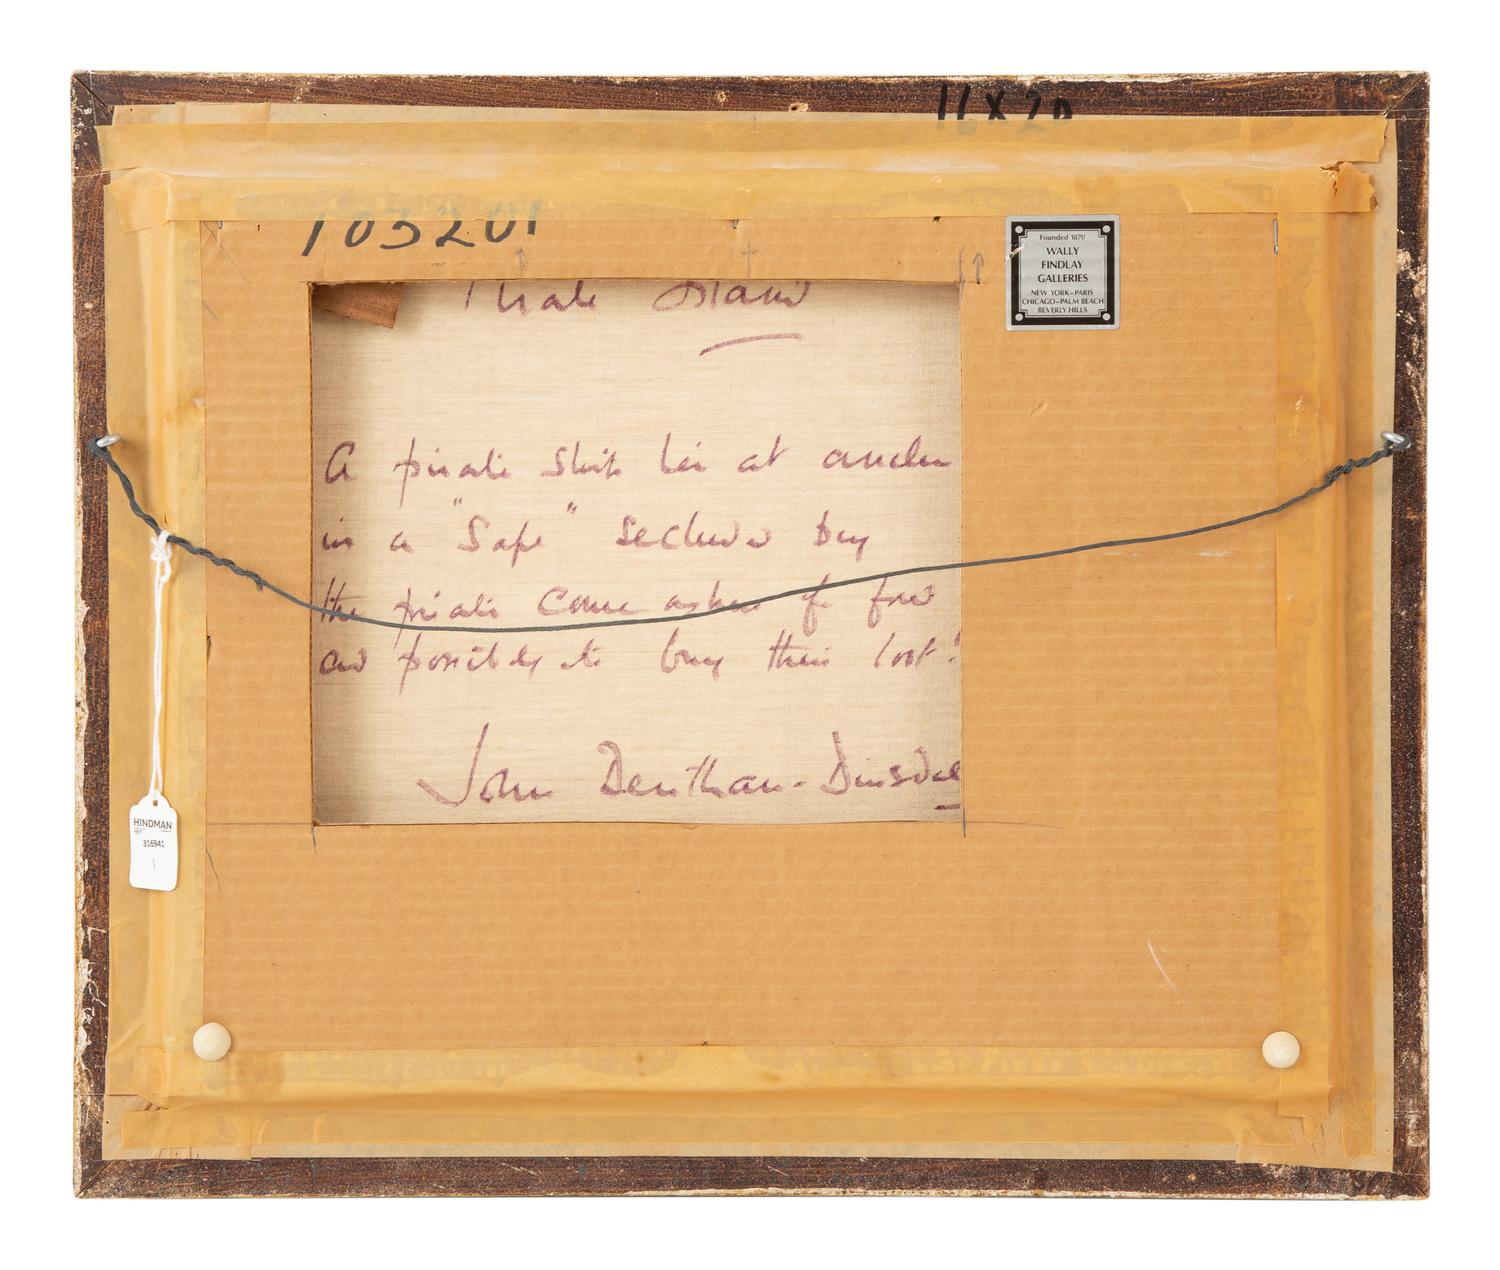 16 x 20
103201
Founded 1870
WALLY
FINDLAY
GALLERIES
NEW YORK-PARIS
CHICAGO-PALM BEACH
BEVERLY HILLS
Pirate Island
A pirate ship lies at anchor
in a "Safe" secluded bay
the pirates come ashore for food
and possibly to bury their loot!
John Bentham-Dinsdale
HINDMAN
316941
1